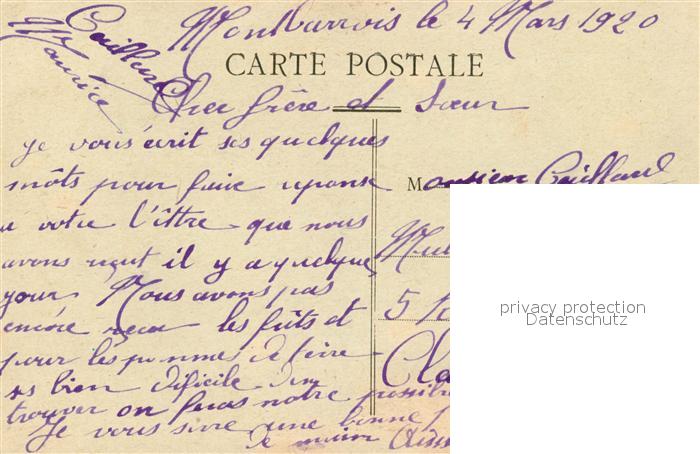 Montbarrois le 4 Mars 1920
Gaillard
Maurice
CARTE POSTALE
Cher frère et Sœur
je vous écrit ses quelques
môts pour faire reponse
a votre l'ittre que nous
avons reçut il y a quelque
jour Nous avons pas
encore recu les fûts et
pour les pommes de terre
ses bien dificile d'en
trouver on feras notre possible
Je vous sivre une bonne
de main
Monsieur Gaillard
5
privacy protection
Datenschutz